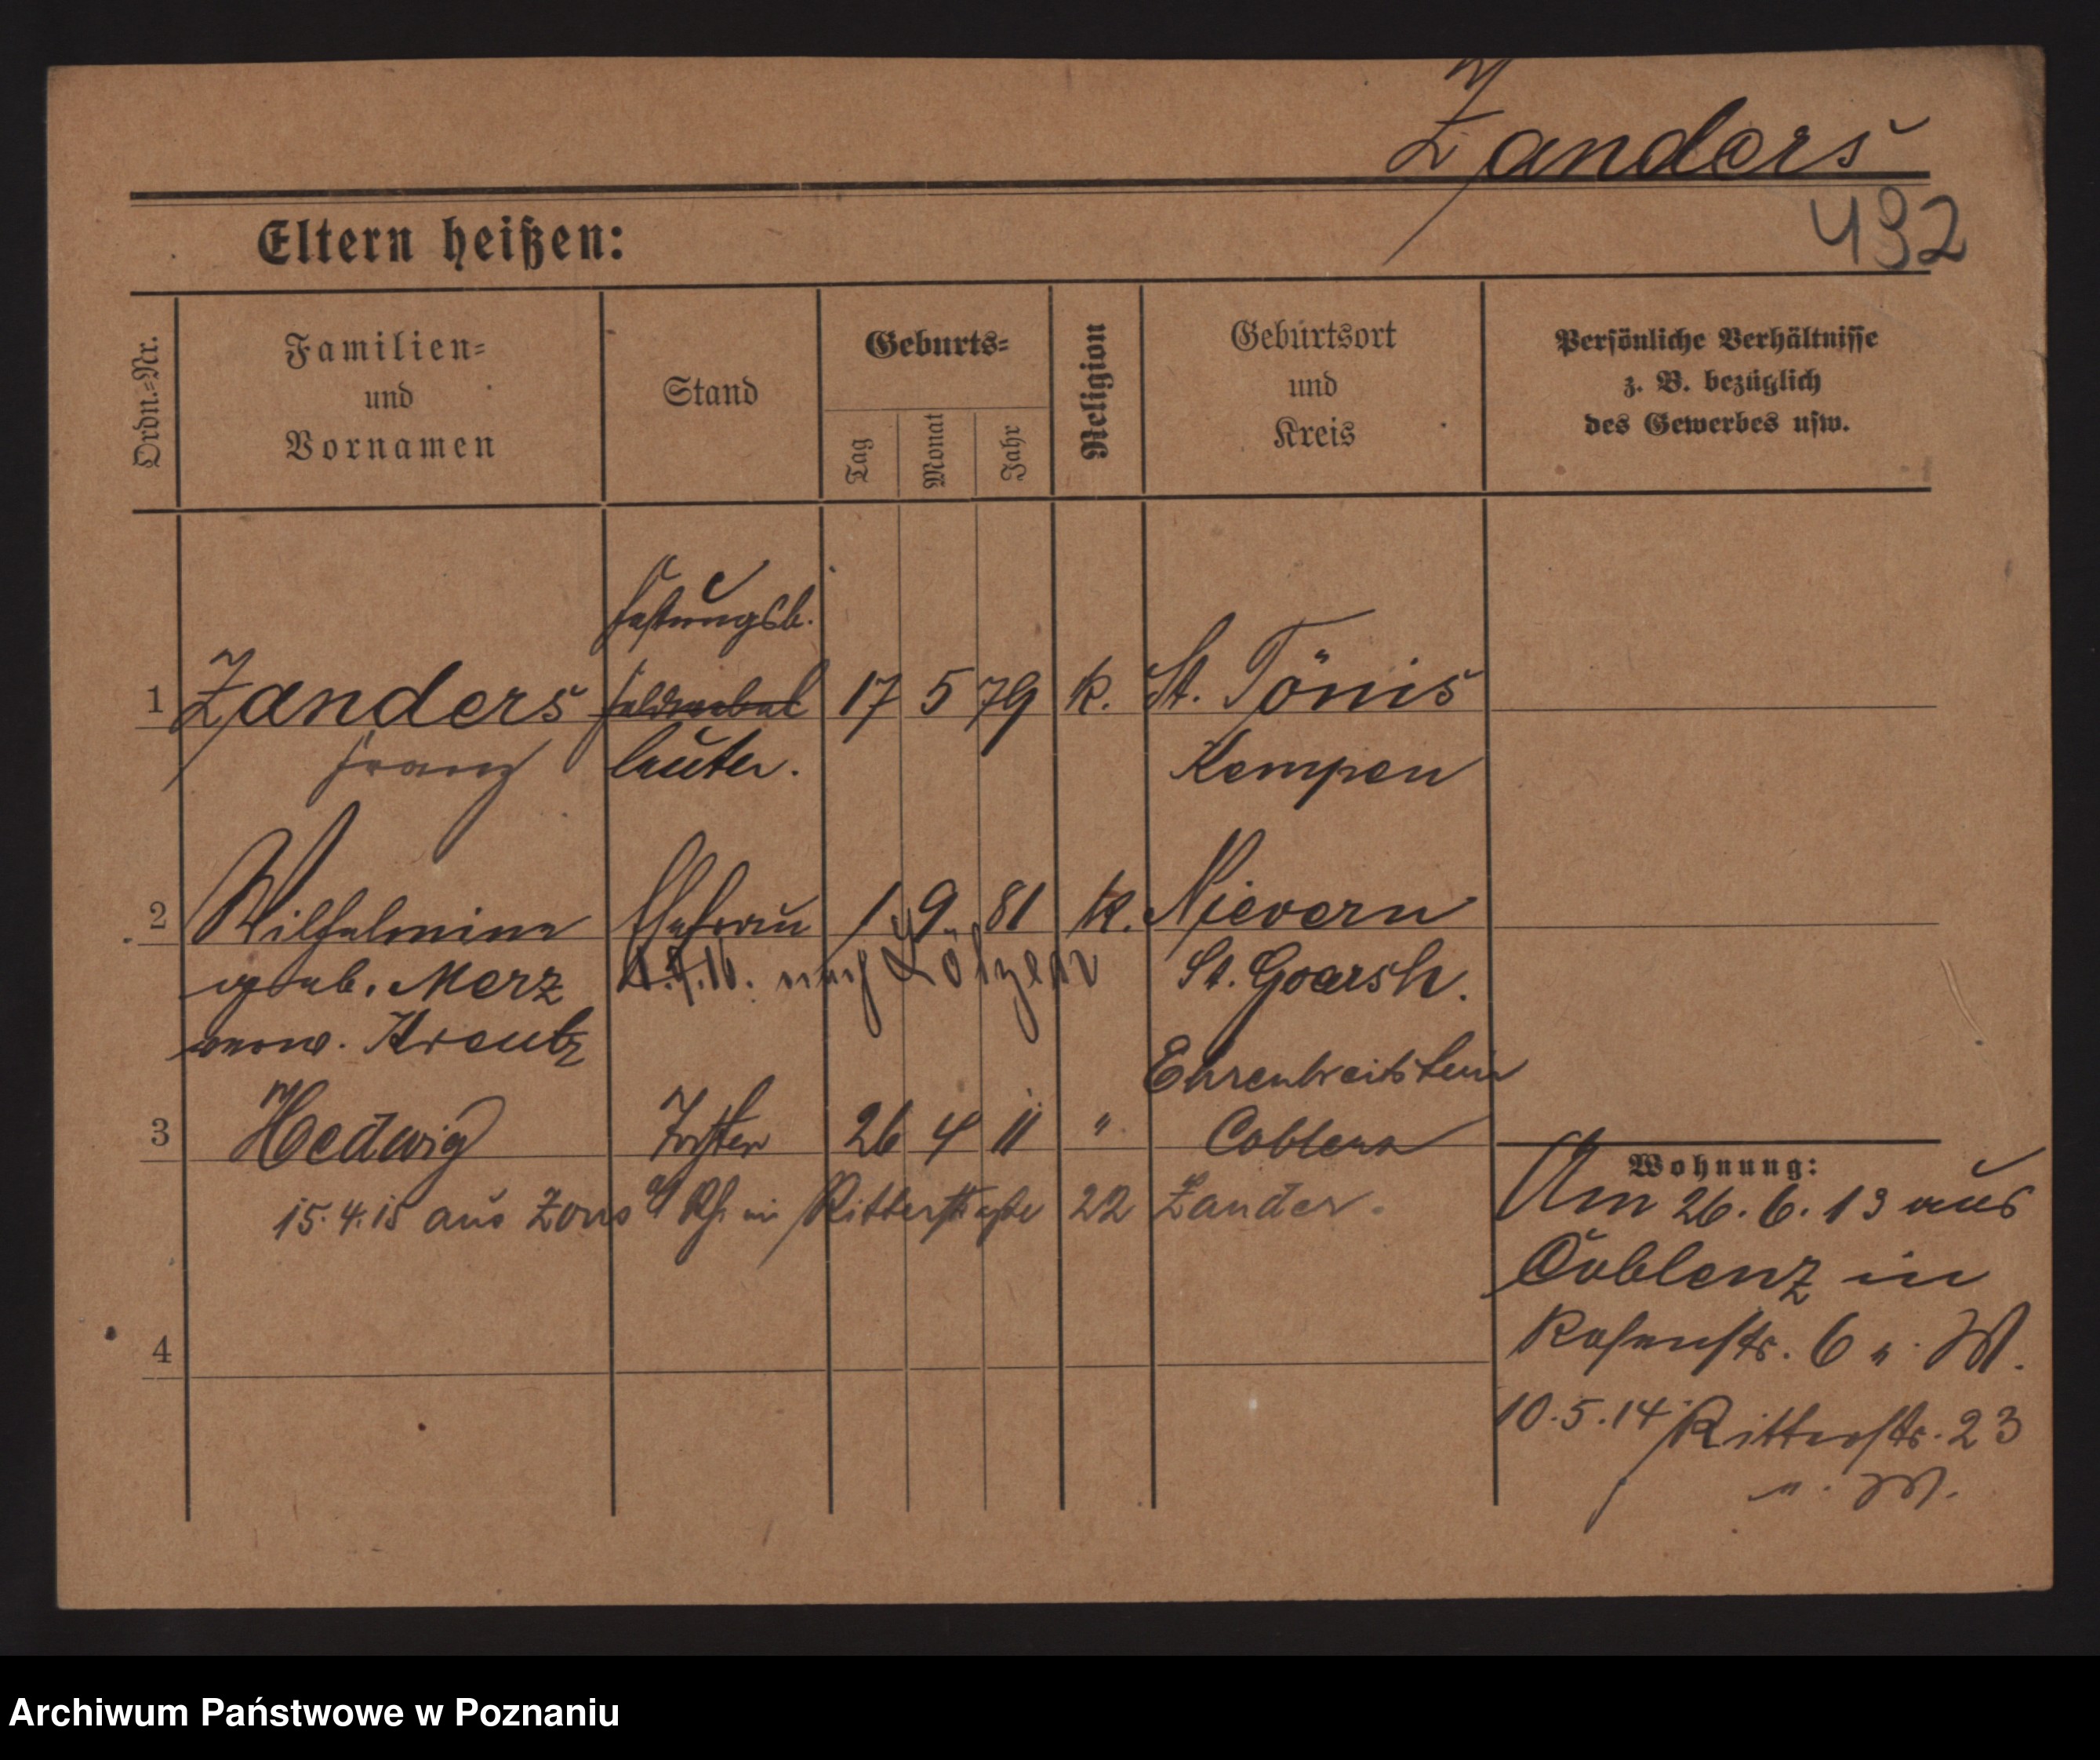 Zanders
492
Eltern heißen:
Ordn.=Nr.
Familien=
und
Vornamen
Stand
Geburts=
Tag
Monat
Jahr
Religion
Geburtsort
und
Kreis
Persönliche Verhältnisse
z. B. bezüglich
des Gewerbes usw.
Festungsb.
1 Zanders Feldwebel 17 5 79 K. St. Tönis
Franz leuten. Kempen
2 Wilhelmine Ehefrau 1 9. 81 K. Nievern
geb. Merz nach Lötzen St. Goarsh.
verw. Kreutz
Ehrenbreitstein
3 Hedwig Tochter 26 4 11 " Coblenz
15. 4. 15 aus Zons a/ Rh. in Ritterstraße 22 Zander.
4
Wohnung:
Am 26. 6. 13 aus
Coblenz in
6 W.
10. 5. 14 Ritterstr. 23
W.
Archiwum Państwowe w Poznaniu